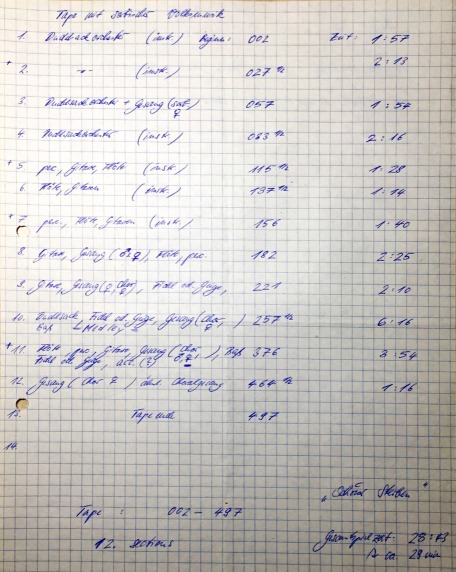 Tape mit Volksmusik
1. Dudelsackorchester (instr.) Beginn: 002 Zeit: 1:57
+ 2. -"- (instr.) 027 1/2 2:13
3. Dudelsackorchester + Gesang ( ♀) 057 1:57
4. Dudelsackorchester (instr.) 083 1/2 2:16
+ 5. perc, Gitarre, Flöte (instr.) 115 1/2 1:28
6. Flöte, Gitarren (instr.) 137 1/2 1:14
+ 7. perc., Flöte, Gitarren (instr.) 156 1:40
8. Gitarre, Gesang (♂ ♀), Flöte, perc. 182 2:25
9. Gitarre, Gesang (♀, Chor ♀), Fidel od. Geige, 221 2:10
10. Dudelsack, Fidel od. Geige, Gesang (Chor, ♀) 257 1/2 6:16
Baß
+ 11. Flöte, perc, Gitarre, Gesang (Chor ♂, ♀), Baß 376 3:54
Fidel od. Geige, (?)
12. Gesang (Chor ♀) Choralgesang 464 1/2 1:16
13. Tape ende 497
14.
Tape: 002 - 497
12. sections
Gesamtspielzeit: 28:
ca. 29 min